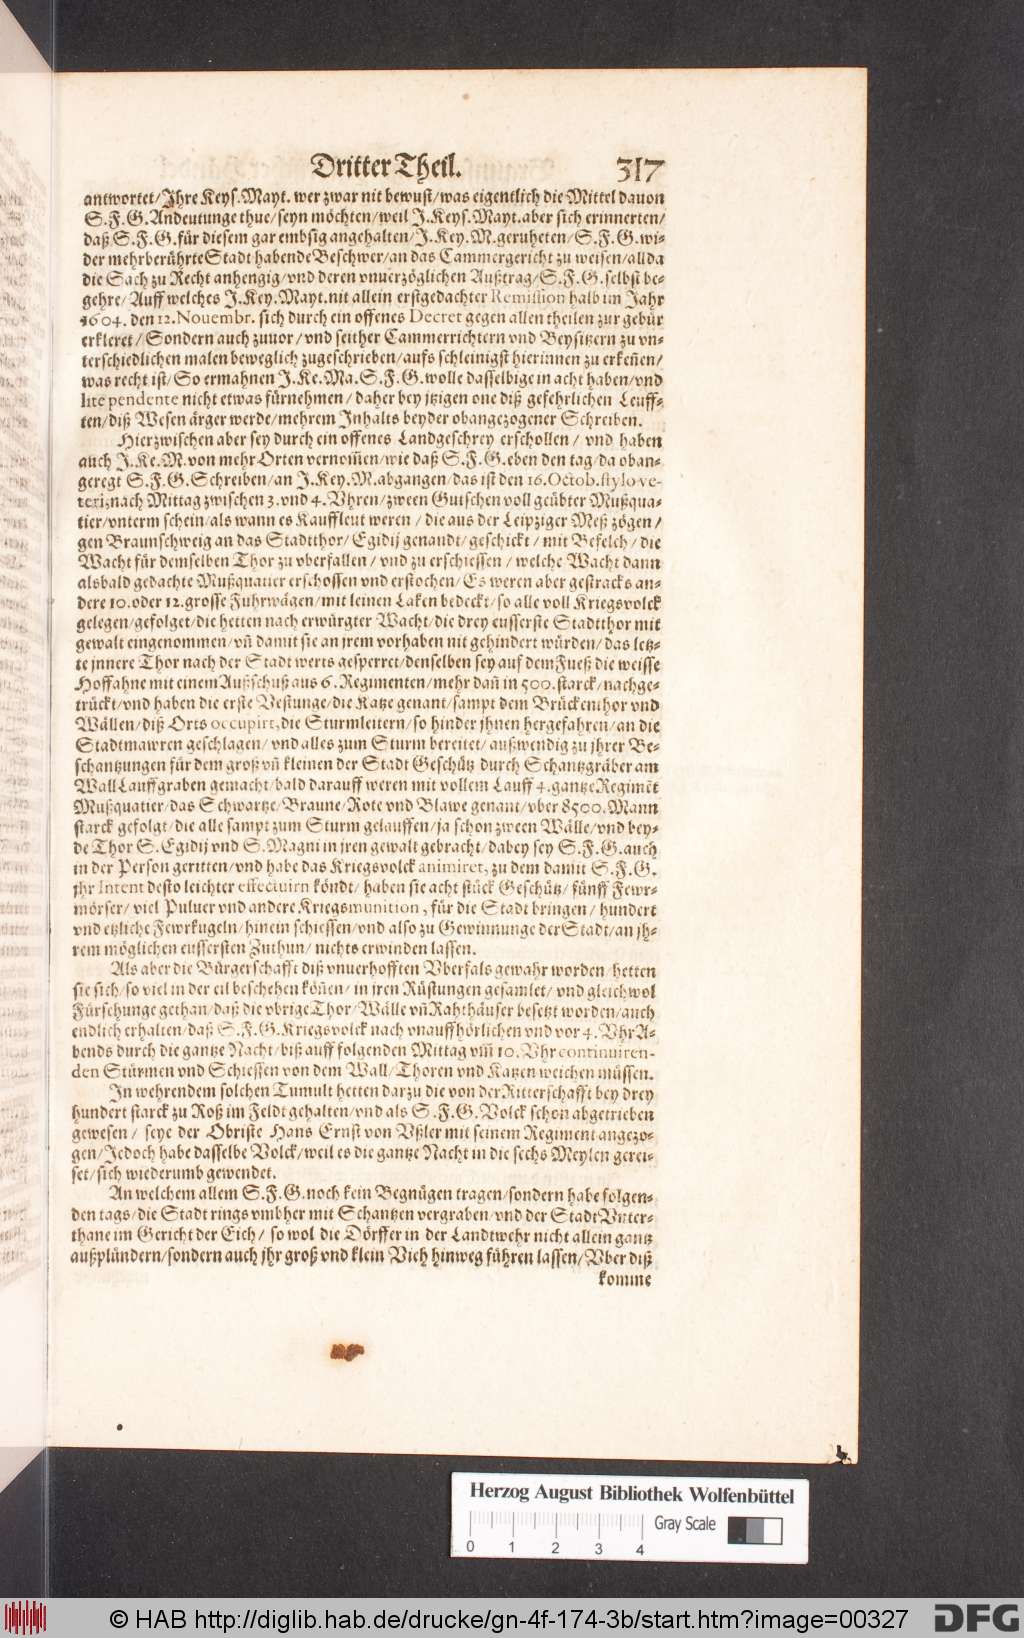 Dritter Theil. 317
antwortet/Jhre Keys.Mayt. wer zwar nit bewust/was eigentlich die Mittel dauon
S.F.G.Andeutunge thue/seyn möchten/weil J.Keys.Mayt.aber sich erinnerten/
daß S.F.G.für diesem gar embsig angehalten/J.Key.M.geruheten/S.F.G.wi-
der mehrberührte Stadt habende Beschwer/an das Cammergericht zu weisen/allda
die Sach zu Recht anhengig/vnd deren vnuerzöglichen Außtrag/S.F.G.selbst be-
gehre/Auff welches J.Key.Mayt.nit allein erstgedachter Remission halb im Jahr
1604. den 12.Nouembr. sich durch ein offenes Decret gegen allen theilen zur gebür
erkleret/Sondern auch zuuor/vnd seither Cammerrichtern vnd Beysitzern zu vn-
terschiedlichen malen beweglich zugeschrieben/aufs schleinigst hierinnen zu erkeñen/
was recht ist/So ermahnen J.Ke.Ma.S.F.G.wolle dasselbige in acht haben/vnd
lite pendente nicht etwas fürnehmen/daher bey itzigen one diß gefehrlichen Leuff-
ten/diß Wesen ärger werde/mehrem Jnhalts beyder obangezogener Schreiben.
Hierzwischen aber sey durch ein offenes Landgeschrey erschollen/vnd haben
auch J.Ke.M.von mehr Orten vernom̃en/wie daß S.F.G.eben den tag/da oban-
geregt S.F.G.Schreiben/an J.Key.M.abgangen/das ist den 16.Octob.stylo ve-
teri,nach Mittag zwischen 3.vnd 4.Vhren/zween Gutschen voll geübter Mußqua-
tier/vnterm schein/als wann es Kauffleut weren/die aus der Leipziger Meß zögen/
gen Braunschweig an das Stadtthor/Egidij genandt/geschickt/mit Befelch/die
Wacht für demselben Thor zu vberfallen/vnd zu erschiessen/welche Wacht dann
alsbald gedachte Mußquatier erschossen vnd erstochen/Es weren aber gestracks an-
dere 10.oder 12.grosse Fuhrwägen/mit leinen Laken bedeckt/so alle voll Kriegsvolck
gelegen/gefolget/die hetten nach erwürgter Wacht/die drey eusserste Stadtthor mit
gewalt eingenommen/vñ damit sie an jrem vorhaben nit gehindert würden/das letz-
te jnnere Thor nach der Stadt werts gesperret/denselben sey auf dem Fueß die weisse
Hoffahne mit einem Außschuß aus 6.Regimenten/mehr dañ in 500.starck/nachge-
trückt/vnd haben die erste Vestunge/die Katze genant/sampt dem Brückenthor vnd
Wällen/diß Orts occupirt,die Sturmleitern/so hinder jhnen hergefahren/an die
Stadtmawren geschlagen/vnd alles zum Sturm bereitet/außwendig zu jhrer Be-
schantzungen für dem groß vñ kleinen der Stadt Geschütz durch Schantzgräber am
Wall Lauffgraben gemacht/bald darauff weren mit vollem Lauff 4.gantze Regimẽt
Mußquatier/das Schwartze/Braune/Rote vnd Blawe genant/vber 8500.Mann
starck gefolgt/die alle sampt zum Sturm gelauffen/ja schon zween Wälle/vnd bey-
de Thor S.Egidij vnd S.Magni in jren gewalt gebracht/dabey sey S.F.G.auch
in der Person geritten/vnd habe das Kriegsvolck animiret, zu dem damit S.F.G.
jhr Intent desto leichter effectuirn köndt/haben sie acht stück Geschütz/fünff Fewr-
mörser/viel Puluer vnd andere Kriegsmunition, für die Stadt bringen/hundert
vnd etzliche Fewrkugeln/hinein schiessen/vnd also zu Gewinnunge der Stadt/an jh-
rem möglichen eussersten Zuthun/nichts erwinden lassen.
Als aber die Bürgerschafft diß vnuerhofften Vberfals gewahr worden/hetten
sie sich/so viel in der eil beschehen köñen/in jren Rüstungen gesamlet/vnd gleichwol
Fürsehunge gethan/daß die vbrige Thor/Wälle vñ Rahthäuser besetzt worden/auch
endlich erhalten/daß S.F.G.Kriegsvolck nach vnauffhörlichen vnd vor 4.Vhr A-
bends durch die gantze Nacht/biß auff folgenden Mittag vm̃ 10.Vhr continuiren-
den Stürmen vnd Schiessen von dem Wall/Thoren vnd Katzen weichen müssen.
Jn wehrendem solchen Tumult hetten darzu die von der Ritterschafft bey drey
hundert starck zu Roß im Feldt gehalten/vnd als S.F.G.Volck schon abgetrieben
gewesen/seye der Obriste Hans Ernst von Vßler mit seinem Regiment angezo-
gen/Jedoch habe dasselbe Volck/weil es die gantze Nacht in die sechs Meylen gerei-
set/sich wiederumb gewendet.
An welchem allem S.F.G.noch kein Begnügen tragen/sondern habe folgen-
den tags/die Stadt rings vmbher mit Schantzen vergraben/vnd der Stadt Vnter-
thane im Gericht der Eich/so wol die Dörffer in der Landtwehr nicht allein gantz
außplündern/sondern auch jhr groß vnd klein Vieh hinweg führen lassen/Vber diß
komme
Herzog August Bibliothek Wolfenbüttel
Gray Scale
0 1 2 3 4
© HAB http://diglib.hab.de/drucke/gn-4f-174-3b/start.htm?image=00327
DFG